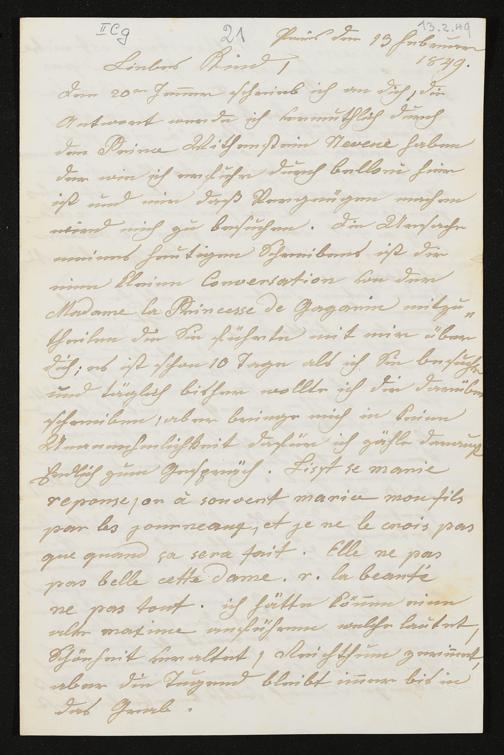 II C g 21 13.2.49
Paris den 13 Februar
1849.
Liebes Kind!
Den 20ten Jänner schrieb ich an dich, die
Antwort werde ich vermuthlich durch
den Prince Withenstein Neveue haben
der wie ich erfuhr durch bellonie hier
ist und mir daß Vergnügen machen
wird mich zu besuchen. Die Ursache
meines heutigen Schreibens ist dir
eine kleine Conversation von der
Madame la Princesse de Gagarin mitzu=
theilen die Sie führte mit mir über
dich; es ist schon 10 Tage als ich Sie besuchte
und täglich bisher wollte ich dir darüber
schreiben, aber bringe mich in keine
Unannehmlichkeit dafür ich zähle darauf
Endlich zum Gespräch. Liszt se marie
reponse, on à souvent marieè mon fils
par les journeaux, et je ne le crois pas
que quand ça sera fait. Elle ne pas
pas belle cette dame. r. la beauté
ne pas tout. ich hätte können eine
alte maxime anführen welche lautet,
Schönheit veraltet, Reichthum zerrinnt,
aber die Tugend bleibt immer bis in
das Grab.